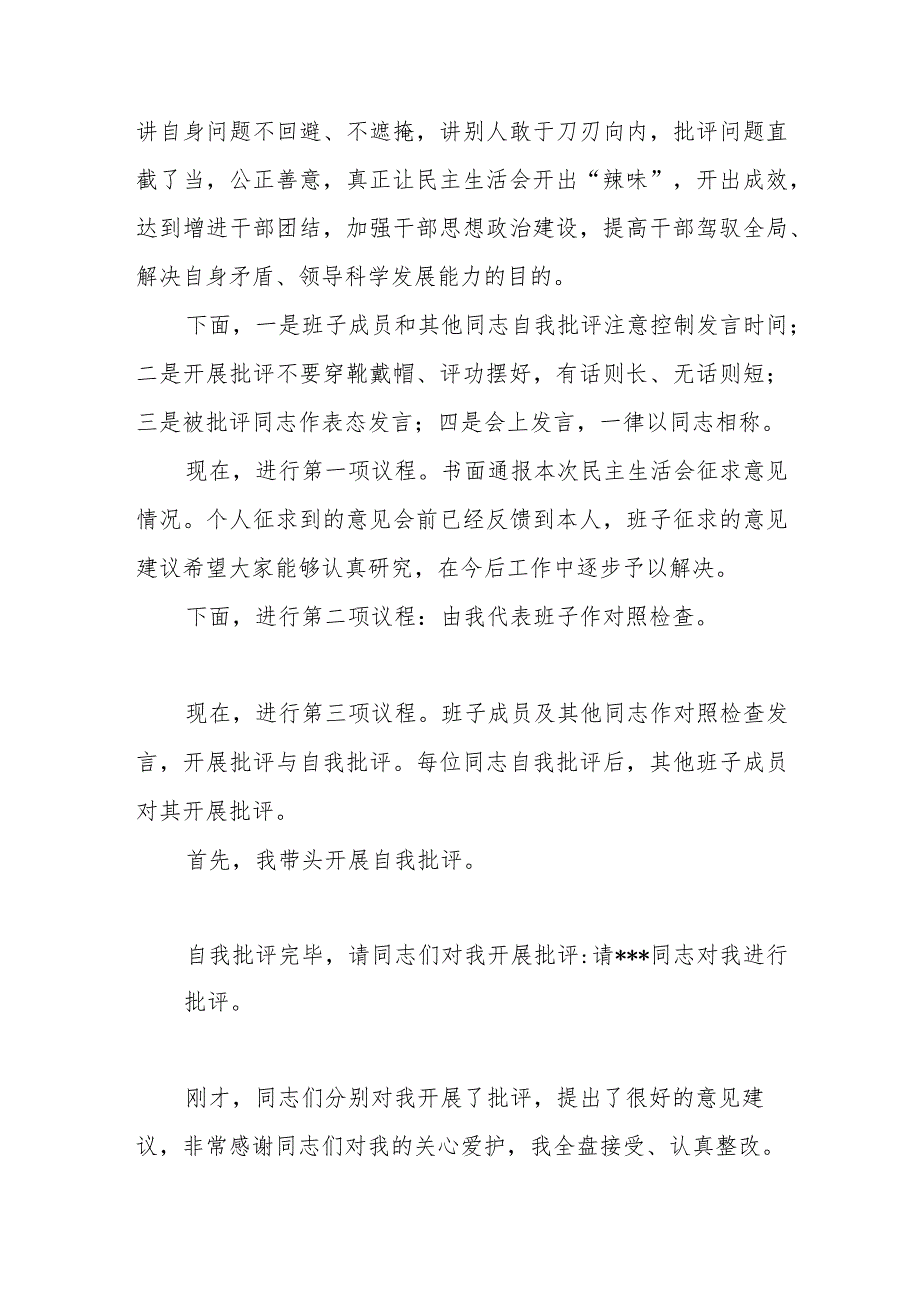 讲自身问题不回避、不遮掩，讲别人敢于刀刃向内，批评问题直
截了当，公正善意，真正让民主生活会开出“辣味”，开出成效，
达到增进干部团结，加强干部思想政治建设，提高干部驾驭全局、
解决自身矛盾、领导科学发展能力的目的。
下面，一是班子成员和其他同志自我批评注意控制发言时间；
二是开展批评不要穿靴戴帽、评功摆好，有话则长、无话则短；
三是被批评同志作表态发言；四是会上发言，一律以同志相称。
现在，进行第一项议程。书面通报本次民主生活会征求意见
情况。个人征求到的意见会前已经反馈到本人，班子征求的意见
建议希望大家能够认真研究，在今后工作中逐步予以解决。
下面，进行第二项议程：由我代表班子作对照检查。
现在，进行第三项议程。班子成员及其他同志作对照检查发
言，开展批评与自我批评。每位同志自我批评后，其他班子成员
对其开展批评。
首先，我带头开展自我批评。
自我批评完毕，请同志们对我开展批评:请***同志对我进行
批评。
刚才，同志们分别对我开展了批评，提出了很好的意见建
议，非常感谢同志们对我的关心爱护，我全盘接受、认真整改。